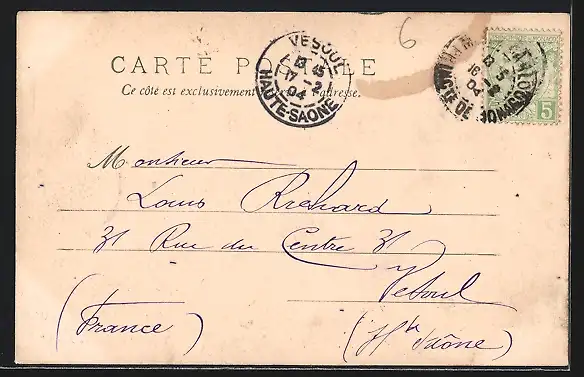 CARTE POSTALE
Ce côté est exclusivement réservé à l'adresse.
6
VESOUL
17 -2
04
HAUTE-SAÔNE
16
04
PTÉ DE MONACO
5
Monsieur
Louis Richard
31 Rue du Centre 31
Vesoul
(France)
(Hte Saône)